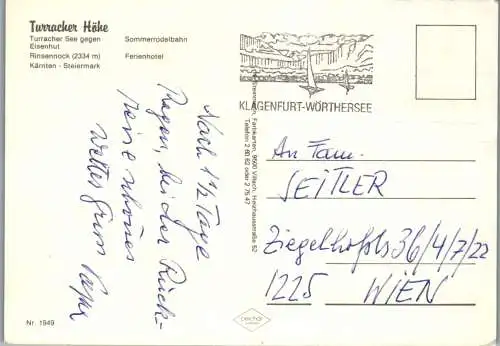 Turracher Höhe
Turracher See gegen
Eisenhut
Rinsennock (2334 m)
Kärnten - Steiermark
Sommerrodelbahn
Ferienhotel
KLAGENFURT-WÖRTHERSEE
Nach 1 1/2 Tage
Regen, bei der Rück-
reise schönes
Wetter
Farbkarten, 9500 Villach, Heizhausstraße 52
Telefon 2 60 62 oder 2 75 47
An Fam.
SEITLER
Ziegelhofstr 36/4/7/22
1225 WIEN
Nr. 1949